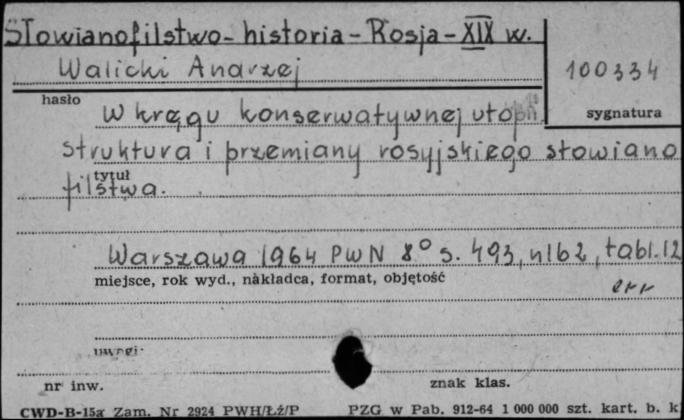 Słowianofilstwo - historia - Rosja - XIX w.
Walicki Andrzej
100334
hasło
sygnatura
W kręgu konserwatywnej utopii
struktura i przemiany rosyjskiego słowiano
tytuł
filstwa.
Warszawa 1964 PWN 8° s. 493, nlb 2, tabl. 12
miejsce, rok wyd., nakładca, format, objętość
err
uwagi:
nr inw.
znak klas.
CWD-B-15a Zam. Nr 2924 PWH/Łź/P PZG w Pab. 912-64 1 000 000 szt. kart. b. k